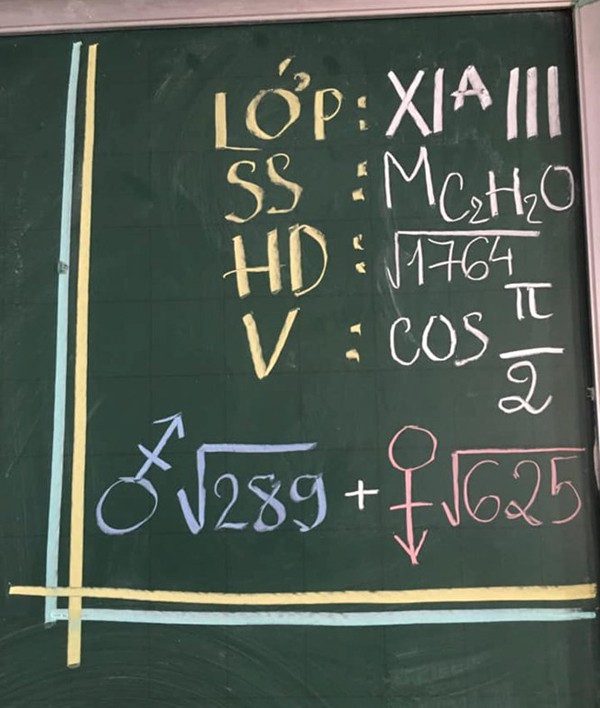 LỚP: XIA III
SS : MC₂H₂O
HD : √1764
V : cos π/2
♂ √289 + ♀ √625